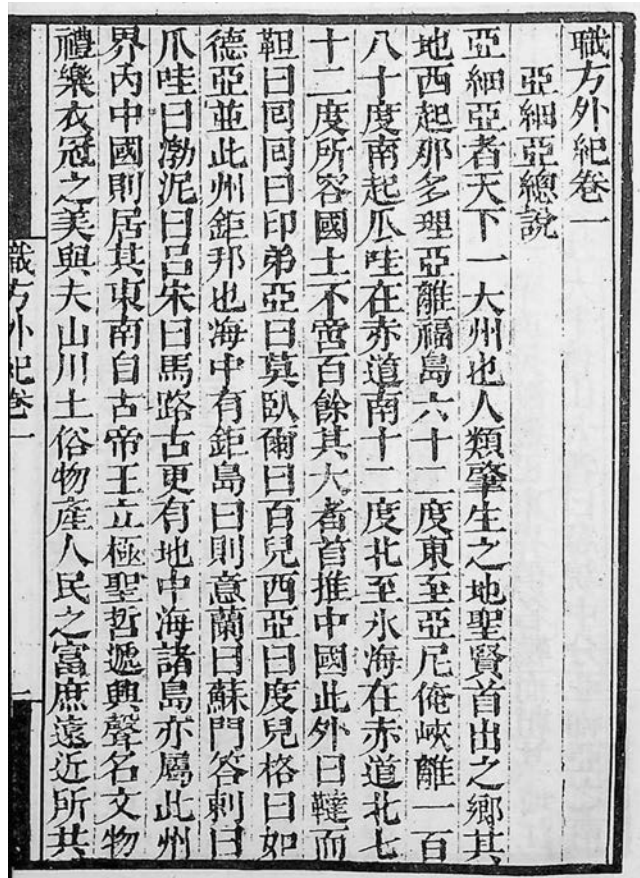 職方外紀卷一
亞細亞總說
亞細亞者天下一大州也人類肇生之地聖賢首出之鄉其
地西起那多理亞離福島六十二度東至亞尼俺峽離一百
八十度南起瓜哇在赤道南十二度北至氷海在赤道北七
十二度所容國土不啻百餘其大者首推中國此外曰韃而
靼曰囘囘曰印弟亞曰莫臥爾曰百兒西亞曰度兒格曰如
德亞並此州鉅邦也海中有鉅島曰則意蘭曰蘇門答剌曰
爪哇曰渤泥曰呂宋曰馬路古更有地中海諸島亦屬此州
界內中國則居其東南自古帝王立極聖哲遞興聲名文物
禮樂衣冠之美與夫山川土俗物產人民之富庶遠近所共
職方外紀卷一
一